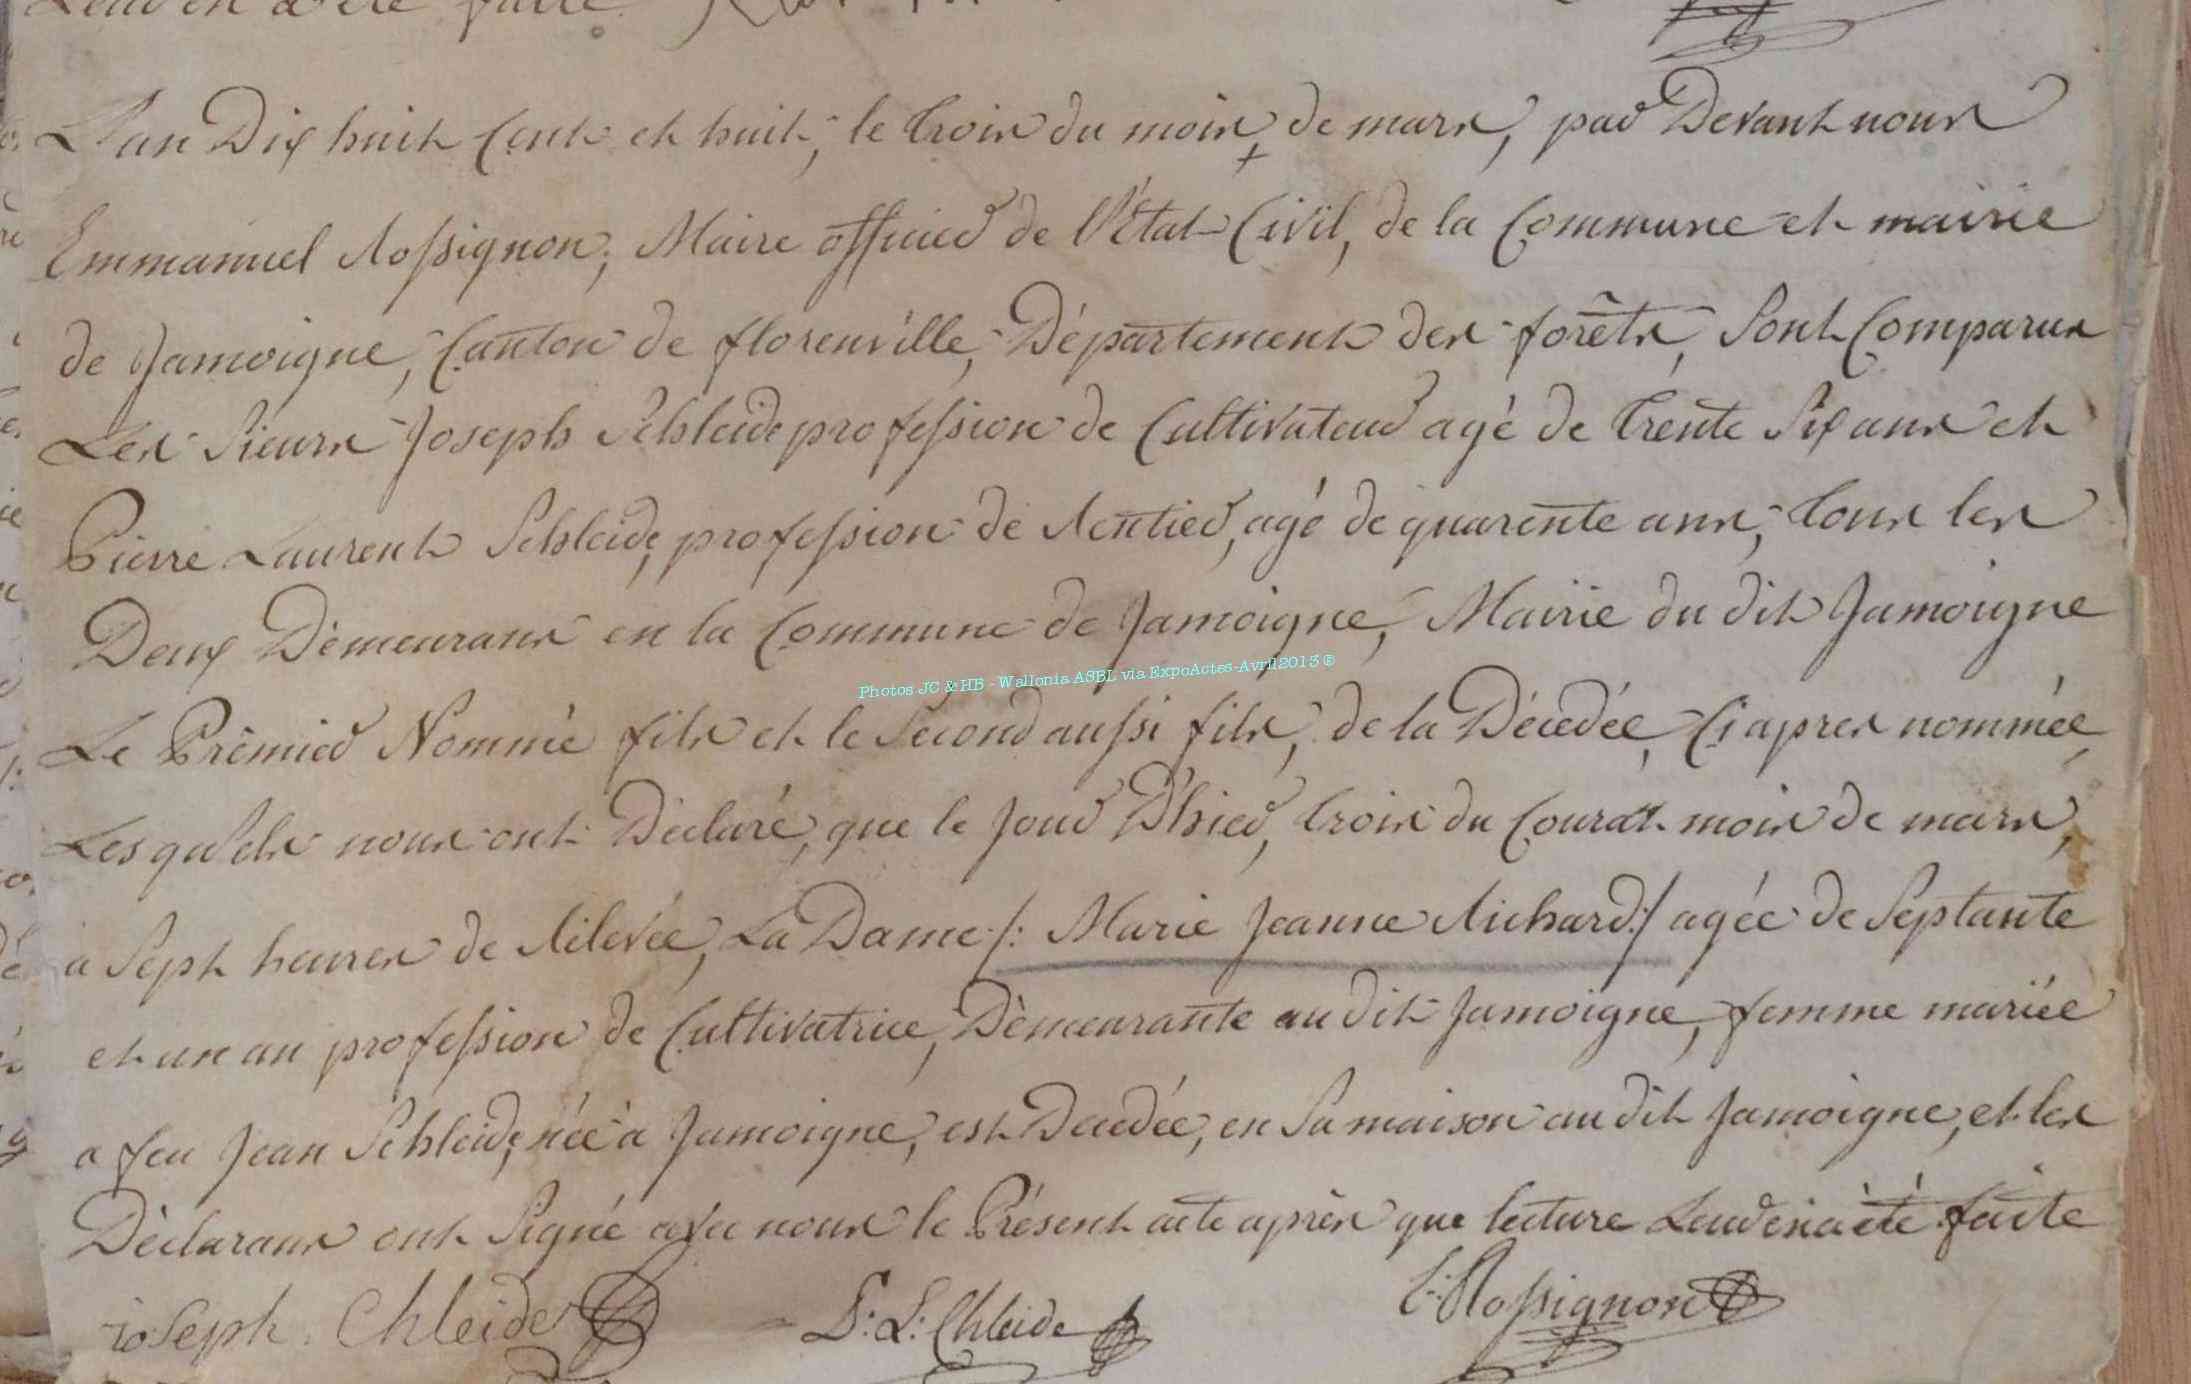 Leur en a été faite
L'an Dix huit Cent et huit, le trois du mois de mars, par Devant nous
Emmanuel Rossignon, Maire officier de l'État Civil, de la Commune et mairie
de Jamoigne, Canton de florenville, Département des forêts, Sont Comparus
Les Sieurs Joseph Schleide profession de Cultivateur agé de trente Six ans et
Pierre Laurent Schleide, profession de Rentier, agé de quarente ans, tous les
Deux Démeurans en la Commune de Jamoigne, Mairie du dit Jamoigne
Le Prémier Nommé fils et le Second aussi fils, de la Décedée, Ci apres nommée,
Lesquels nous ont Déclaré, que le Jour D'hier, trois du Courat mois de mars,
a Sept heures de Rélevée, La Dame /: Marie Jeanne Richard :/ agée de Septante
et un an profession de Cultivatrice, Démeurante au dit Jamoigne, femme mariée
a feu Jean Schleide, née a Jamoigne, est Decedée, en Sa maison au dit Jamoigne, et les
Déclarans ont Signé avec nous le Présent acte après que lecture Leur en a été faite
ioseph Chleide
P: L: Chleide
E: Rossignon
Photos JC & HB - Wallonia ASBL via ExpoActes-Avril2013 ®